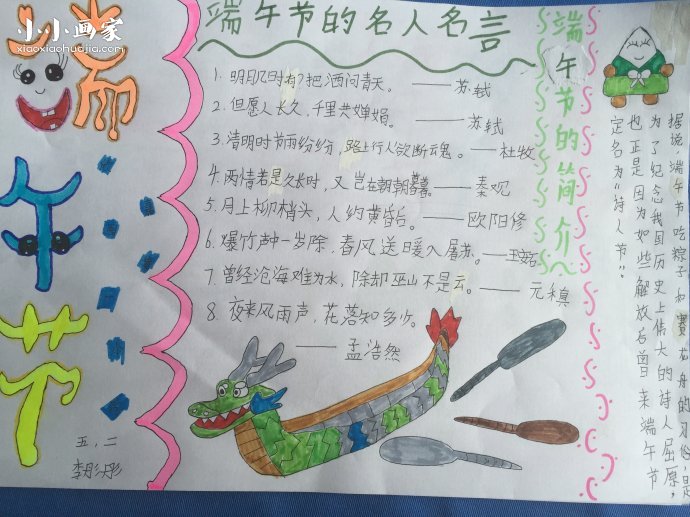 小小画家
xiaoxiaohuajia.com
端午节
端午节的名人名言
1. 明月几时有?把酒问青天。——苏轼
2. 但愿人长久,千里共婵娟。——苏轼
3. 清明时节雨纷纷,路上行人欲断魂。——杜牧
4. 两情若是久长时,又岂在朝朝暮暮。——秦观
5. 月上柳梢头,人约黄昏后。——欧阳修
6. 爆竹声中一岁除,春风送暖入屠苏。——王安石
7. 曾经沧海难为水,除却巫山不是云。——元稹
8. 夜来风雨声,花落知多少。
——孟浩然
端午节的简介
据说,端午节吃粽子和赛龙舟的习俗,是
为了纪念我国历史上伟大的诗人屈原,
也正是因为如些解放后曾来端午节
定名为"诗人节"
五.二
李彤彤